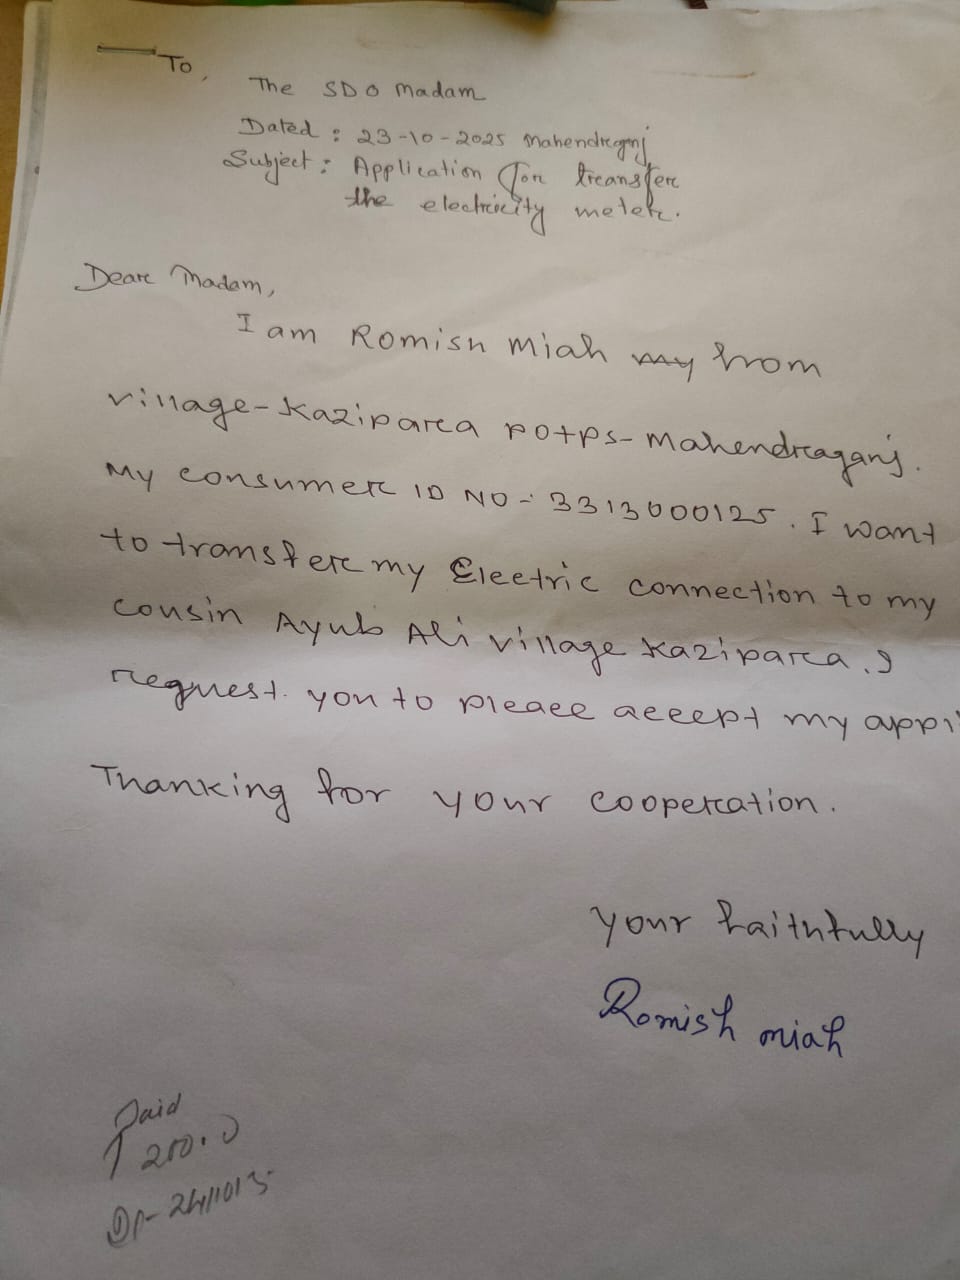 To,
The SDO Madam
Dated : 23-10-2025 Mahendreganj
Subject : Application for treansfer
the electricity meter.
Deare Madam,
I am Romish Miah my from
village-Kaziparca PO+PS- Mahendreaganj.
My consumer ID NO- 3313000125. I want
to transfer my Electric connection to my
cousin Ayub Ali village Kaziparca. I
request you to pleace accept my appli
Thanking for your cooperation.
Your faithfully
Romish miah
Paid